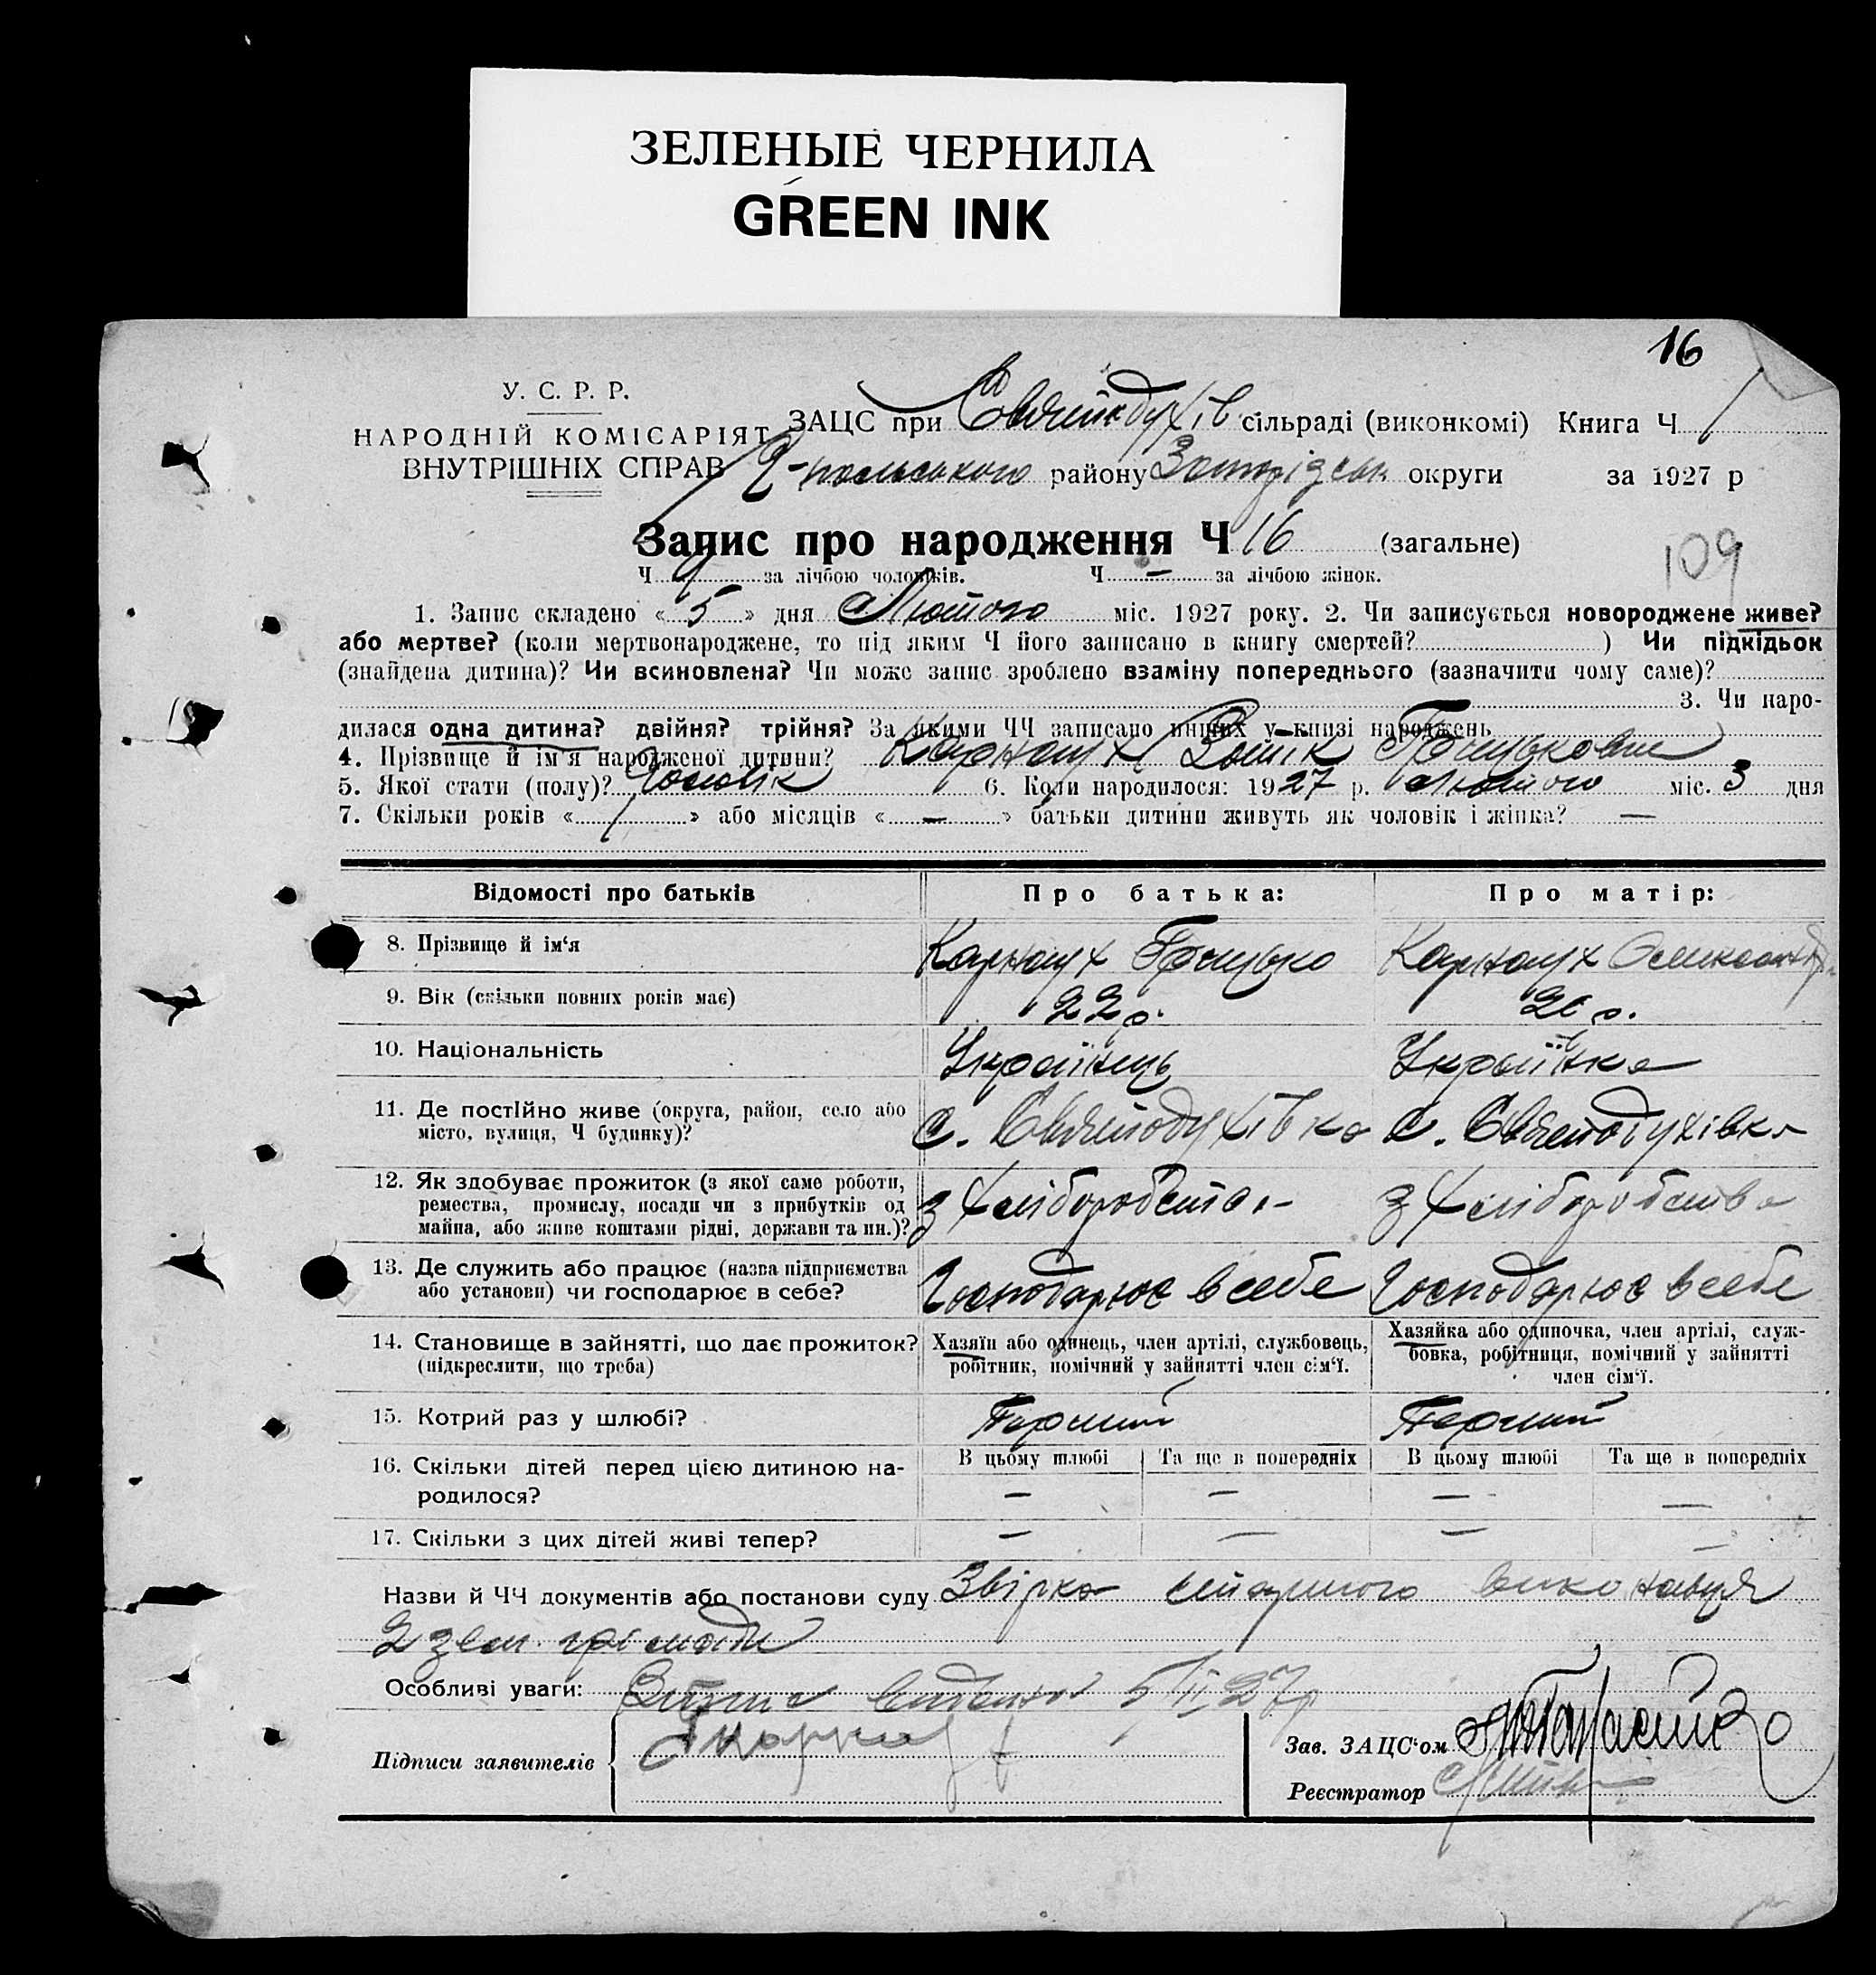 ЗЕЛЕНЫЕ ЧЕРНИЛА
GREEN INK
16
У. С. Р. Р.
НАРОДНІЙ КОМІСАРІЯТ
ВНУТРІШНІХ СПРАВ
ЗАЦС при Святодухів сільраді (виконкомі) Книга Ч 1
району округи за 1927 р
Запис про народження Ч 16 (загальне)
109
Ч 9 за лічбою чоловіків. Ч — за лічбою жінок.
1. Запис складено « 5 » дня Лютого міс. 1927 року. 2. Чи записується новороджене живе?
або мертве? (коли мертвонароджене, то під яким Ч його записано в книгу смертей? ) Чи підкідьок
(знайдена дитина)? Чи всиновлена? Чи може запис зроблено взаміну попереднього (зазначити чому саме)?
3. Чи наро-
дилася одна дитина? двійня? трійня? За якими ЧЧ записано инших у книзі народжень
4. Прізвище й ім'я народженої дитини? Карнаух Грицькови
5. Якої стати (полу)? Чоловік 6. Коли народилося: 1927 р. Лютого міс. 3 дня
7. Скільки років « / » або місяців « — » батьки дитини живуть як чоловік і жінка? —
Відомості про батьків Про батька: Про матір:
8. Прізвище й ім'я Карнаух Грицько Карнаух Олександр
9. Вік (скільки повних років має) 22 р. р.
10. Національність Українець Українка
11. Де постійно живе (округа, район, село або
місто, вулиця, Ч будинку)? с. Святодухівка с. Святодухівка
12. Як здобуває прожиток (з якої саме роботи,
ремества, промислу, посади чи з прибутків од
майна, або живе коштами рідні, держави та ин.)? з хліборобства з хліборобства
13. Де служить або працює (назва підприємства
або установи) чи господарює в себе? Господарює в себе Господарює в себе
14. Становище в зайнятті, що дає прожиток?
(підкреслити, що треба)
Хазяїн або одинець, член артілі, службовець,
робітник, помічний у зайнятті член сім'ї.
Хазяйка або одиночка, член артілі, служ-
бовка, робітниця, помічний у зайнятті
член сім'ї.
15. Котрий раз у шлюбі? Перший Перший
В цьому шлюбі Та ще в попередніх В цьому шлюбі Та ще в попередніх
16. Скільки дітей перед цією дитиною на-
родилося? — — — —
17. Скільки з цих дітей живі тепер? — — —
Назви й ЧЧ документів або постанови суду Звірка виконавця
2 зем. громади
Особливі уваги: 5/II 27р
Підписи заявителів
Зав. ЗАЦС'ом
Реєстратор